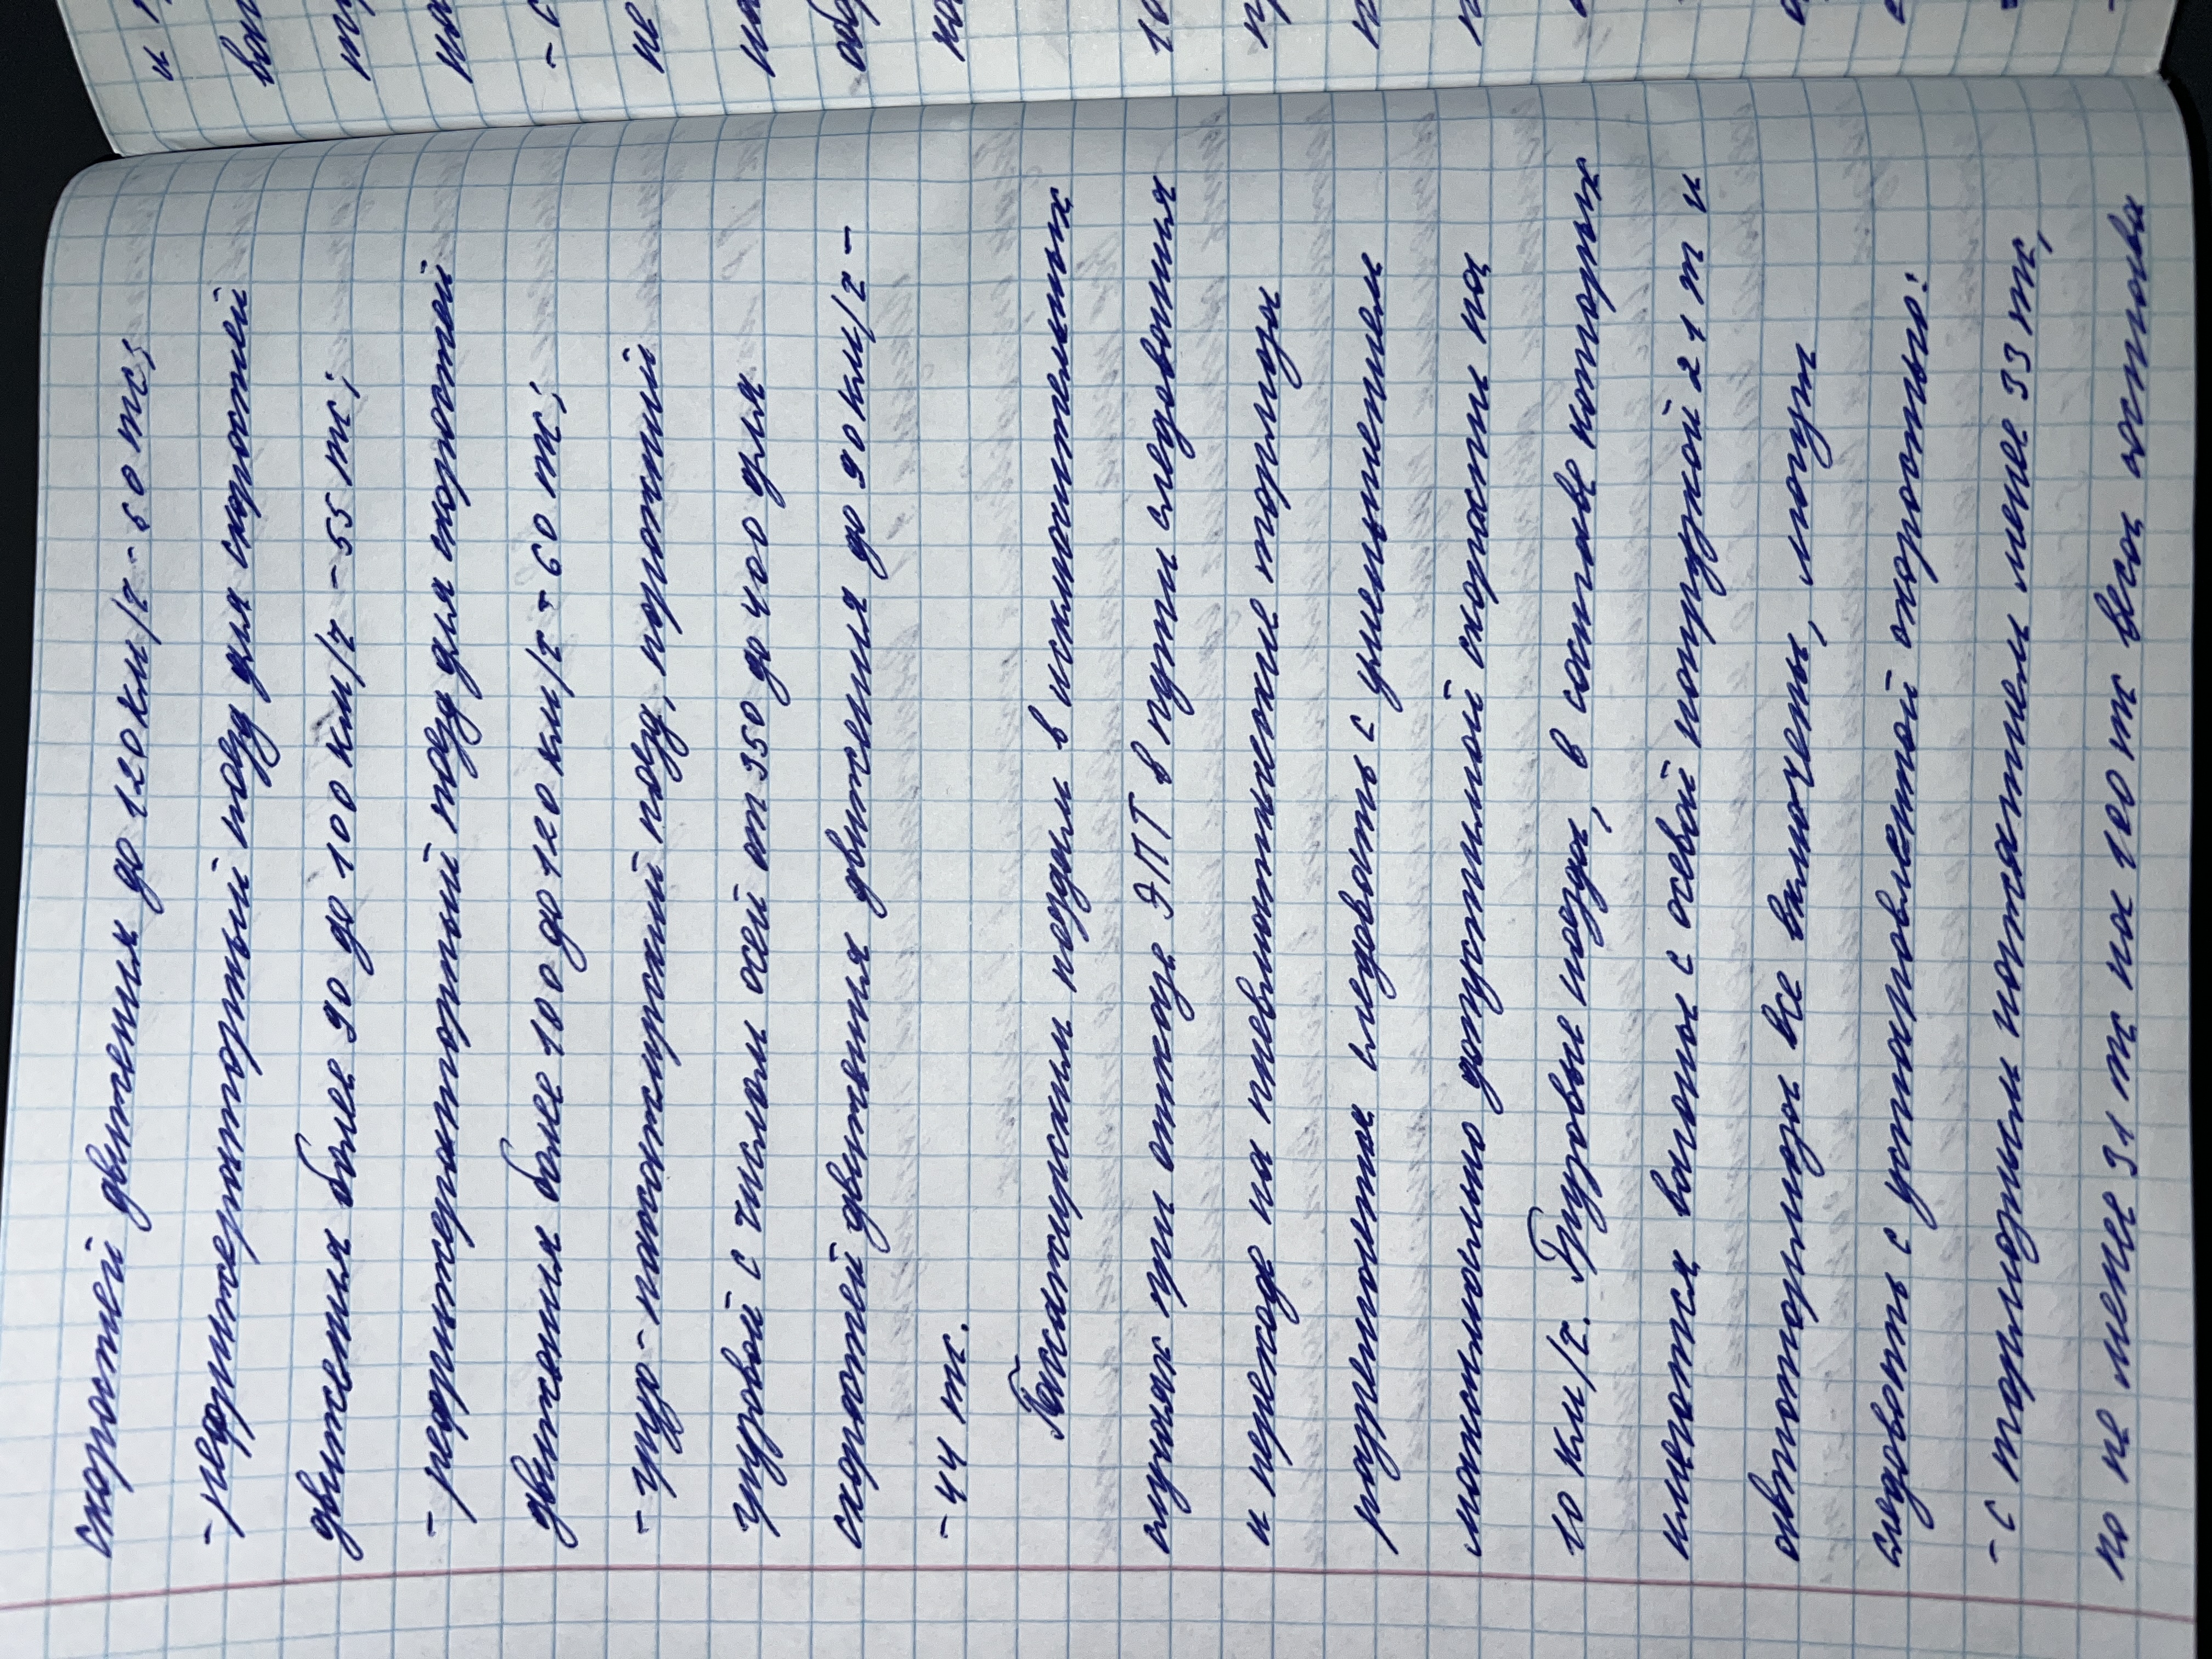 скоростей движения до 120 км/ч - 60 тс;
- рефрижераторный поезд для скоростей
движения более 90 до 100 км/ч - 55 тс;
- рефрижераторный поезд для скоростей
движения более 100 до 120 км/ч - 60 тс;
- грузо-пассажирский поезд, порожний
грузовой с числом осей от 350 до 400 для
скоростей движения движения до 90 км/ч -
- 44 тс.
Пассажирским поездам в исключительных
случаях при отказе ЭПТ в пути следования
и переходе на пневматические тормоза
разрешается следовать с уменьшением
максимально допустимой скорости на
10 км/ч. Грузовые поезда, в составе которых
имеются вагоны с осевой нагрузкой 21 т и
автотормоза все включены, могут
следовать с установленной скоростью:
- с тормозным нажатием менее 33 тс,
но не менее 31 тс на 100 тс веса состава